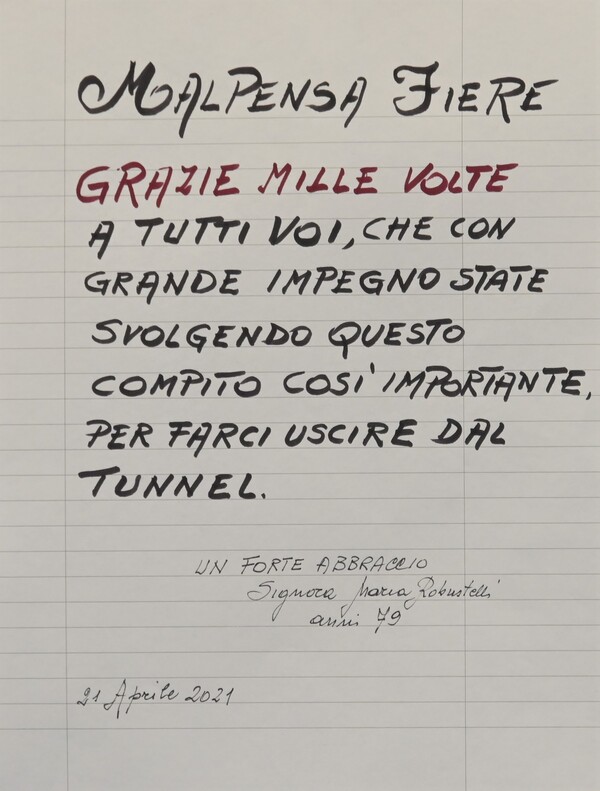 MALPENSA FIERE
GRAZIE MILLE VOLTE
A TUTTI VOI, CHE CON
GRANDE IMPEGNO STATE
SVOLGENDO QUESTO
COMPITO COSI' IMPORTANTE,
PER FARCI USCIRE DAL
TUNNEL.
UN FORTE ABBRACCIO
Signora Maria Robustelli
anni 79
21 Aprile 2021